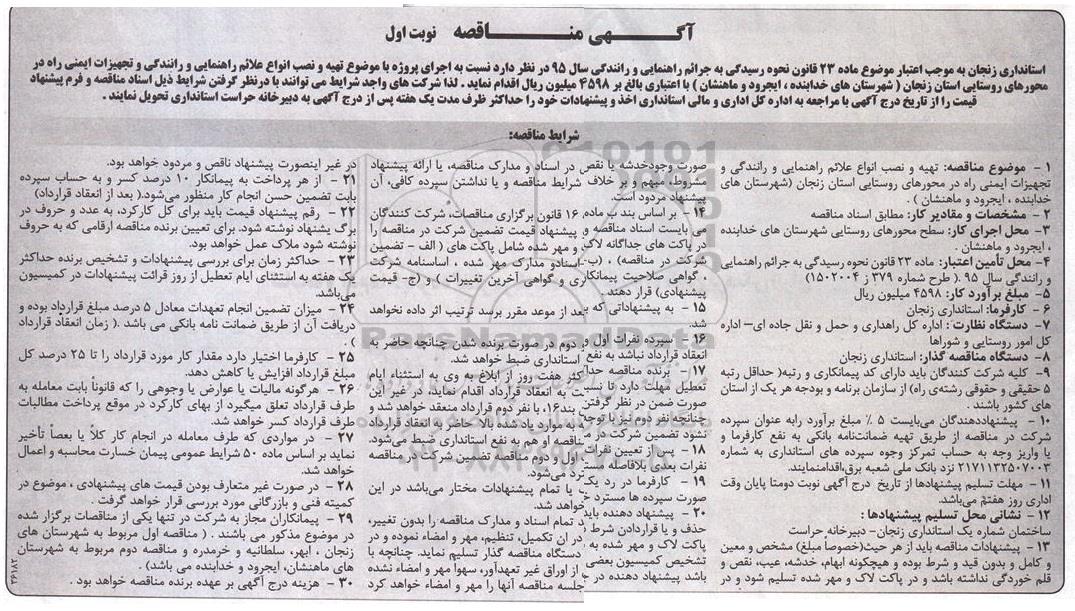 آگهی مناقصه نوبت اول
استانداری زنجان به موجب اعتبار موضوع ماده ۲۳ قانون نحوه رسیدگی به جرائم راهنمایی و رانندگی سال ۹۵ در نظر دارد نسبت به اجرای پروژه با موضوع تهیه و نصب انواع علائم راهنمایی و رانندگی و تجهیزات ایمنی راه در
محورهای روستایی استان زنجان ( شهرستان های خدابنده ، ایجرود و ماهنشان ) با اعتباری بالغ بر ۴۵۹۸ میلیون ریال اقدام نماید . لذا شرکت های واجد شرایط می توانند با درنظر گرفتن شرایط ذیل اسناد مناقصه و فرم پیشنهاد
قیمت را از تاریخ درج آگهی با مراجعه به اداره کل اداری و مالی استانداری اخذ و پیشنهادات خود را حداکثر ظرف مدت یک هفته پس از درج آگهی به دبیرخانه حراست استانداری تحویل نمایند .
شرایط مناقصه:
۱ - موضوع مناقصه: تهیه و نصب انواع علائم راهنمایی و رانندگی و
تجهیزات ایمنی راه در محورهای روستایی استان زنجان (شهرستان های
خدابنده ، ایجرود و ماهنشان ) .
۲ - مشخصات و مقادیر کار: مطابق اسناد مناقصه
۳ - محل اجرای کار: سطح محورهای روستایی شهرستان های خدابنده
، ایجرود و ماهنشان .
۴- محل تأمین اعتبار: ماده ۲۳ قانون نحوه رسیدگی به جرائم راهنمایی
و رانندگی سال ۹۵ .( طرح شماره ۳۷۹ ز ۱۵۰۲۰۰۴)
۵- مبلغ برآورد کار: ۴۵۹۸ میلیون ریال
۶ - کارفرما: استانداری زنجان
۷ - دستگاه نظارت : اداره کل راهداری و حمل و نقل جاده ای– اداره
کل امور روستایی و شوراها
۸ – دستگاه مناقصه گذار: استانداری زنجان
۹ - کلیه شرکت کنندگان باید دارای کد پیمانکاری و رتبه( حداقل رتبه
۵ حقیقی و حقوقی رشته‌ی راه) از سازمان برنامه و بودجه هر یک از استان
های کشور باشند .
۱۰ - پیشنهاددهندگان می‌بایست ۵ ٪ مبلغ برآورد رابه عنوان سپرده
شرکت در مناقصه از طریق تهیه ضمانت‌نامه بانکی به نفع کارفرما و
یا واریز وجه به حساب تمرکز وجوه سپرده های استانداری به شماره
۲۱۷۱۱۳۲۵۰۷۰۰۳ نزد بانک ملی شعبه برق،اقدامنمایند.
۱۱- مهلت تسلیم پیشنهادها از تاریخ درج آگهی نوبت دومتا پایان وقت
اداری روز هفتم می‌باشد.
۱۲ – نشانی محل تسلیم پیشنهادها :
ساختمان شماره یک استانداری زنجان– دبیرخانه حراست
۱۳ - پیشنهادات مناقصه باید از هر حیث(خصوصا مبلغ) مشخص و معین
و کامل و بدون قید و شرط بوده و هیچکونه ابهام، خدشه، عیب، نقص و
قلم خوردگی نداشته باشد و در پاکت لاک و مهر شده تسلیم شود و در
صورت وجودخدشه یا نقص در اسناد و مدارک مناقصه، یا ارائه پیشنهاد
مشروط، مبهم و بر خلاف شرایط مناقصه و یا نداشتن سپرده کافی، آن
پیشنهاد مردود است.
۱۴ - بر اساس بند ب ماده ۱۶ قانون برگزاری مناقصات، شرکت کنندگان
می بایست اسناد مناقصه و پیشنهاد قیمت تضمین شرکت در مناقصه را
در پاکت های جداگانه لاک و مهر شده شامل پاکت های ( الف - تضمین
شرکت در مناقصه) ، (ب- اسنادو مدارک مهر شده ، اساسنامه شرکت
، گواهی صلاحیت پیمانکاری و گواهی آخرین تغییرات ) و (ج- قیمت
پیشنهادی) قرار دهند .
۱۵ - به پیشنهاداتی که بعد از موعد مقرر برسد ترتیب اثر داده نخواهد
شد.
۱۶ - سپرده نفرات اول و دوم در صورت برنده شدن چنانچه حاضر به
انعقاد قرارداد نباشد به نفع استانداری ضبط خواهد شد.
۱۷- برنده مناقصه حداکثر هفت روز از ابلاغ به وی به استثناء ایام
تعطیل مهلت دارد تا نسبت به انعقاد قرارداد اقدام نماید، در غیر این
صورت ضمن در نظر گرفتن بند۱۶، با نفر دوم قرارداد منعقد خواهد شد و
چنانچه نفر دوم نیز با توجه به موارد یاد شده بالا حاضر به انعقاد قرارداد
نشود تضمین شرکت در مناقصه او هم به نفع استانداری ضبط می‌شود.
۱۸ - پس از تعیین نفرات اول و دوم مناقصه تضمین شرکت در مناقصه
نفرات بعدی بلافاصله مسترد می‌شود.
۱۹ - کارفرما در رد یک یا تمام پیشنهادات مختار می‌باشد در این
صورت سپرده ها مسترد خواهد شد.
۲۰ - پیشنهاد دهنده باید تمام اسناد و مدارک مناقصه را بدون تغییر،
حذف و یا قراردادن شرط در آن تکمیل، تنظیم، مهر و امضاء نموده و در
پاکت لاک و مهر شده به دستگاه مناقصه گذار تسلیم نماید. چنانچه با
تشخیص کمیسیون بعضی از اوراق غیر تعهدآور، سهوا مهر و امضاء نشده
باشد پیشنهاد دهنده در جلسه مناقصه آنها را مهر و امضاء خواهد کرد
در غیر اینصورت پیشنهاد ناقص و مردود خواهد بود.
۲۱ - از هر پرداخت به پیمانکار ۱۰ درصد کسر و به حساب سپرده
بابت تضمین حسن انجام کار منظور می‌شود.( بعد از انعقاد قرارداد)
۲۲ - رقم پیشنهاد قیمت باید برای کل کارکرد، به عدد و حروف در
برگ پشنهاد نوشته شود. برای تعیین برنده مناقصه ارقامی که به حروف
نوشته شود ملاک عمل خواهد بود.
۲۳ - حداکثر زمان برای بررسی پیشنهادات و تشخیص برنده حداکثر
یک هفته به استثنای ایام تعطیل از روز قرائت پیشنهادات در کمیسیون
می‌باشد.
۲۴ – میزان تضمین انجام تعهدات معادل ۵ درصد مبلغ قرارداد بوده و
دریافت آن از طریق ضمانت نامه بانکی می باشد .( زمان انعقاد قرارداد
) .
۲۵ - کارفرما اختیار دارد مقدار کار مورد قرارداد را تا ۲۵ درصد کل
مبلغ قرارداد افزایش یا کاهش دهد.
۲۶ - هرگونه مالیات یا عوارض یا وجوهی را که قانوناً بابت معامله به
طرف قرارداد تعلق میگیرد از بهای کارکرد در موقع پرداخت مطالبات
طرف قرارداد کسر خواهد شد.
۲۷ - در مواردی که طرف معامله در انجام کار کلاً یا بعضاً تأخیر
نماید بر اساس ماده ۵۰ شرایط عمومی پیمان خسارت محاسبه و اعمال
خواهد شد.
۲۸ - در صورت غیر متعارف بودن قیمت های پیشنهادی ، موضوع در
کمیته فنی و بازرگانی مورد بررسی قرار خواهد گرفت .
۲۹ - پیمانکاران مجاز به شرکت در تنها یکی از مناقصات برگزار شده
در موضوع مذکور می باشند . ( مناقصه اول مربوط به شهرستان های
زنجان ، ابهر، سلطانیه و خرمدره و مناقصه دوم مربوط به شهرستان
های ماهنشان، ایجرود و خدابنده می باشد) .
۳۰ - هزینه درج آگهی بر عهده برنده مناقصه خواهد بود .
۳۶۱۸۲
ParsNamadData